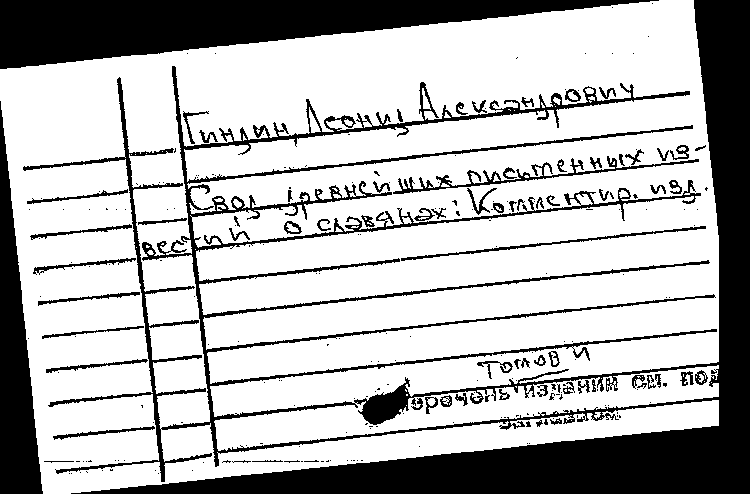 Гиндин, Леонид Александрович
Свод древнейших письменных из-
вестий о славянах: Комментир. изд.
томов и
Перечень изданий см. под
заглавием